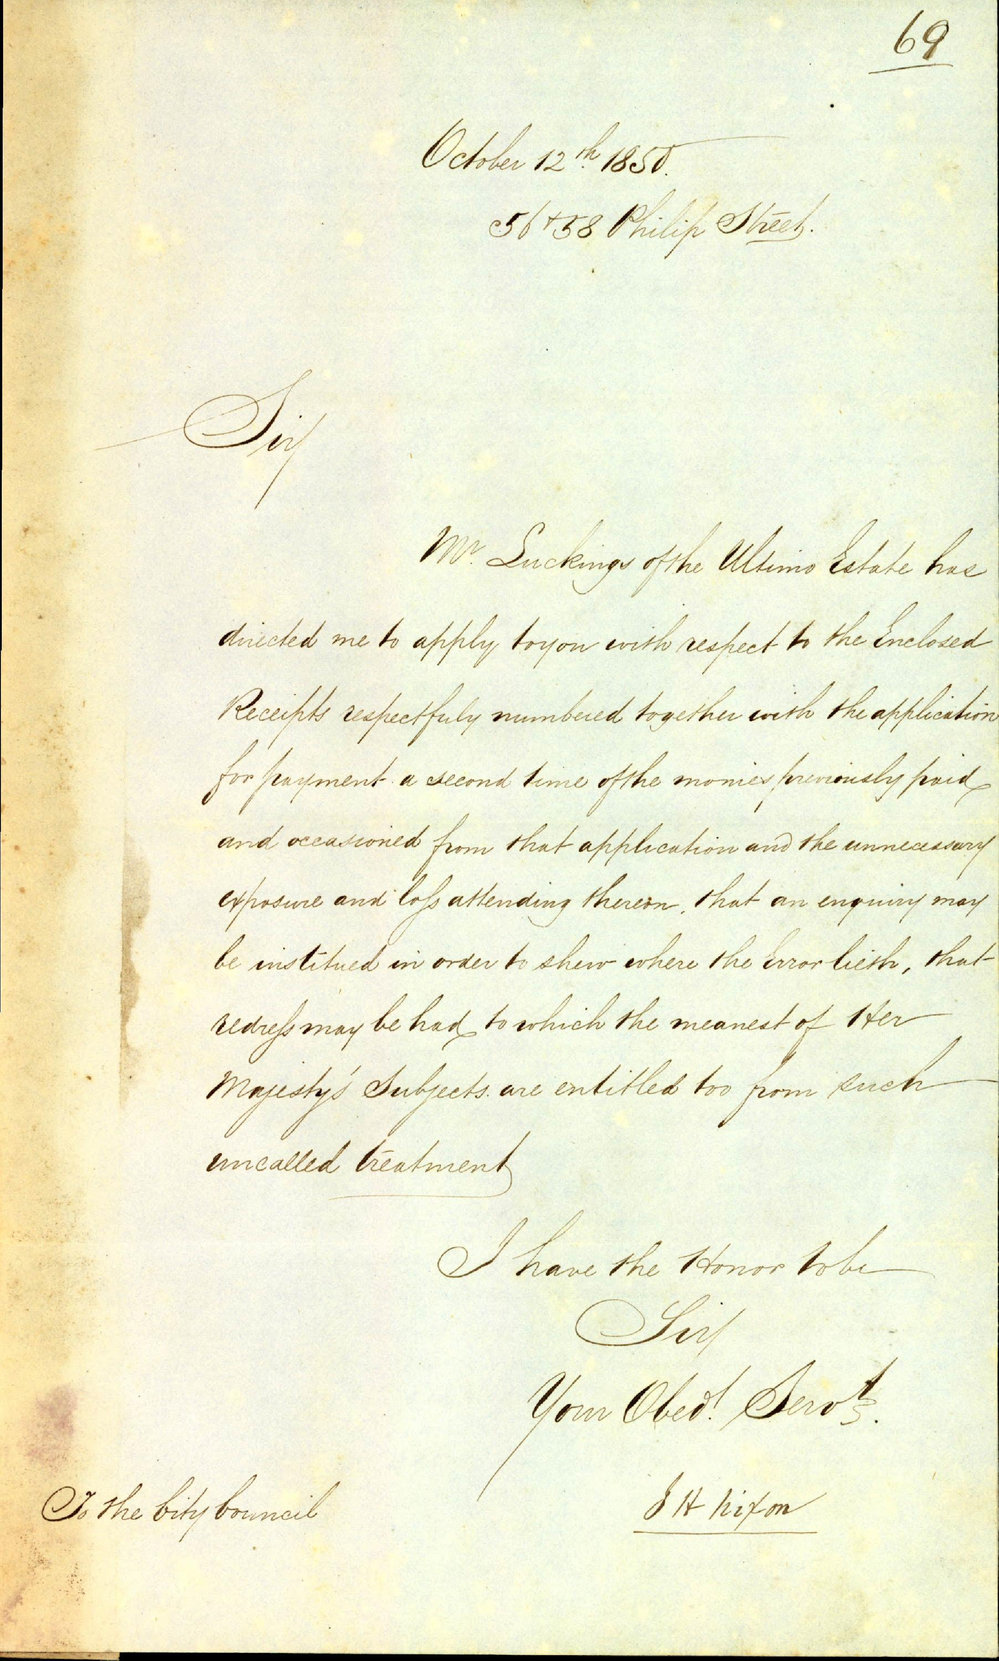 69
October 12th 1850.
56 + 58 Philip Street.
Sir
Mr. Luckings of the Ultimo Estate has
directed me to apply to you with respect to the Enclosed
Receipts respectfuly numbered together with the application
for payment a second time of the monies previously paid
and occasioned from that application and the unnecessary
exposure and loss attending thereon, that an enquiry may
be institued in order to shew where the Error lieth, that
redress may be had, to which the meanest of Her
Majesty's Subjects are entitled too from such
uncalled treatment
I have the Honor to be
Sir
Your Obedt. Servt.
J H Nixon
To the City Council